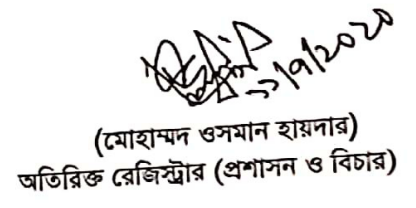 (মোহাম্মদ ওসমান হায়দার)
অতিরিক্ত রেজিস্ট্রার (প্রশাসন ও বিচার)